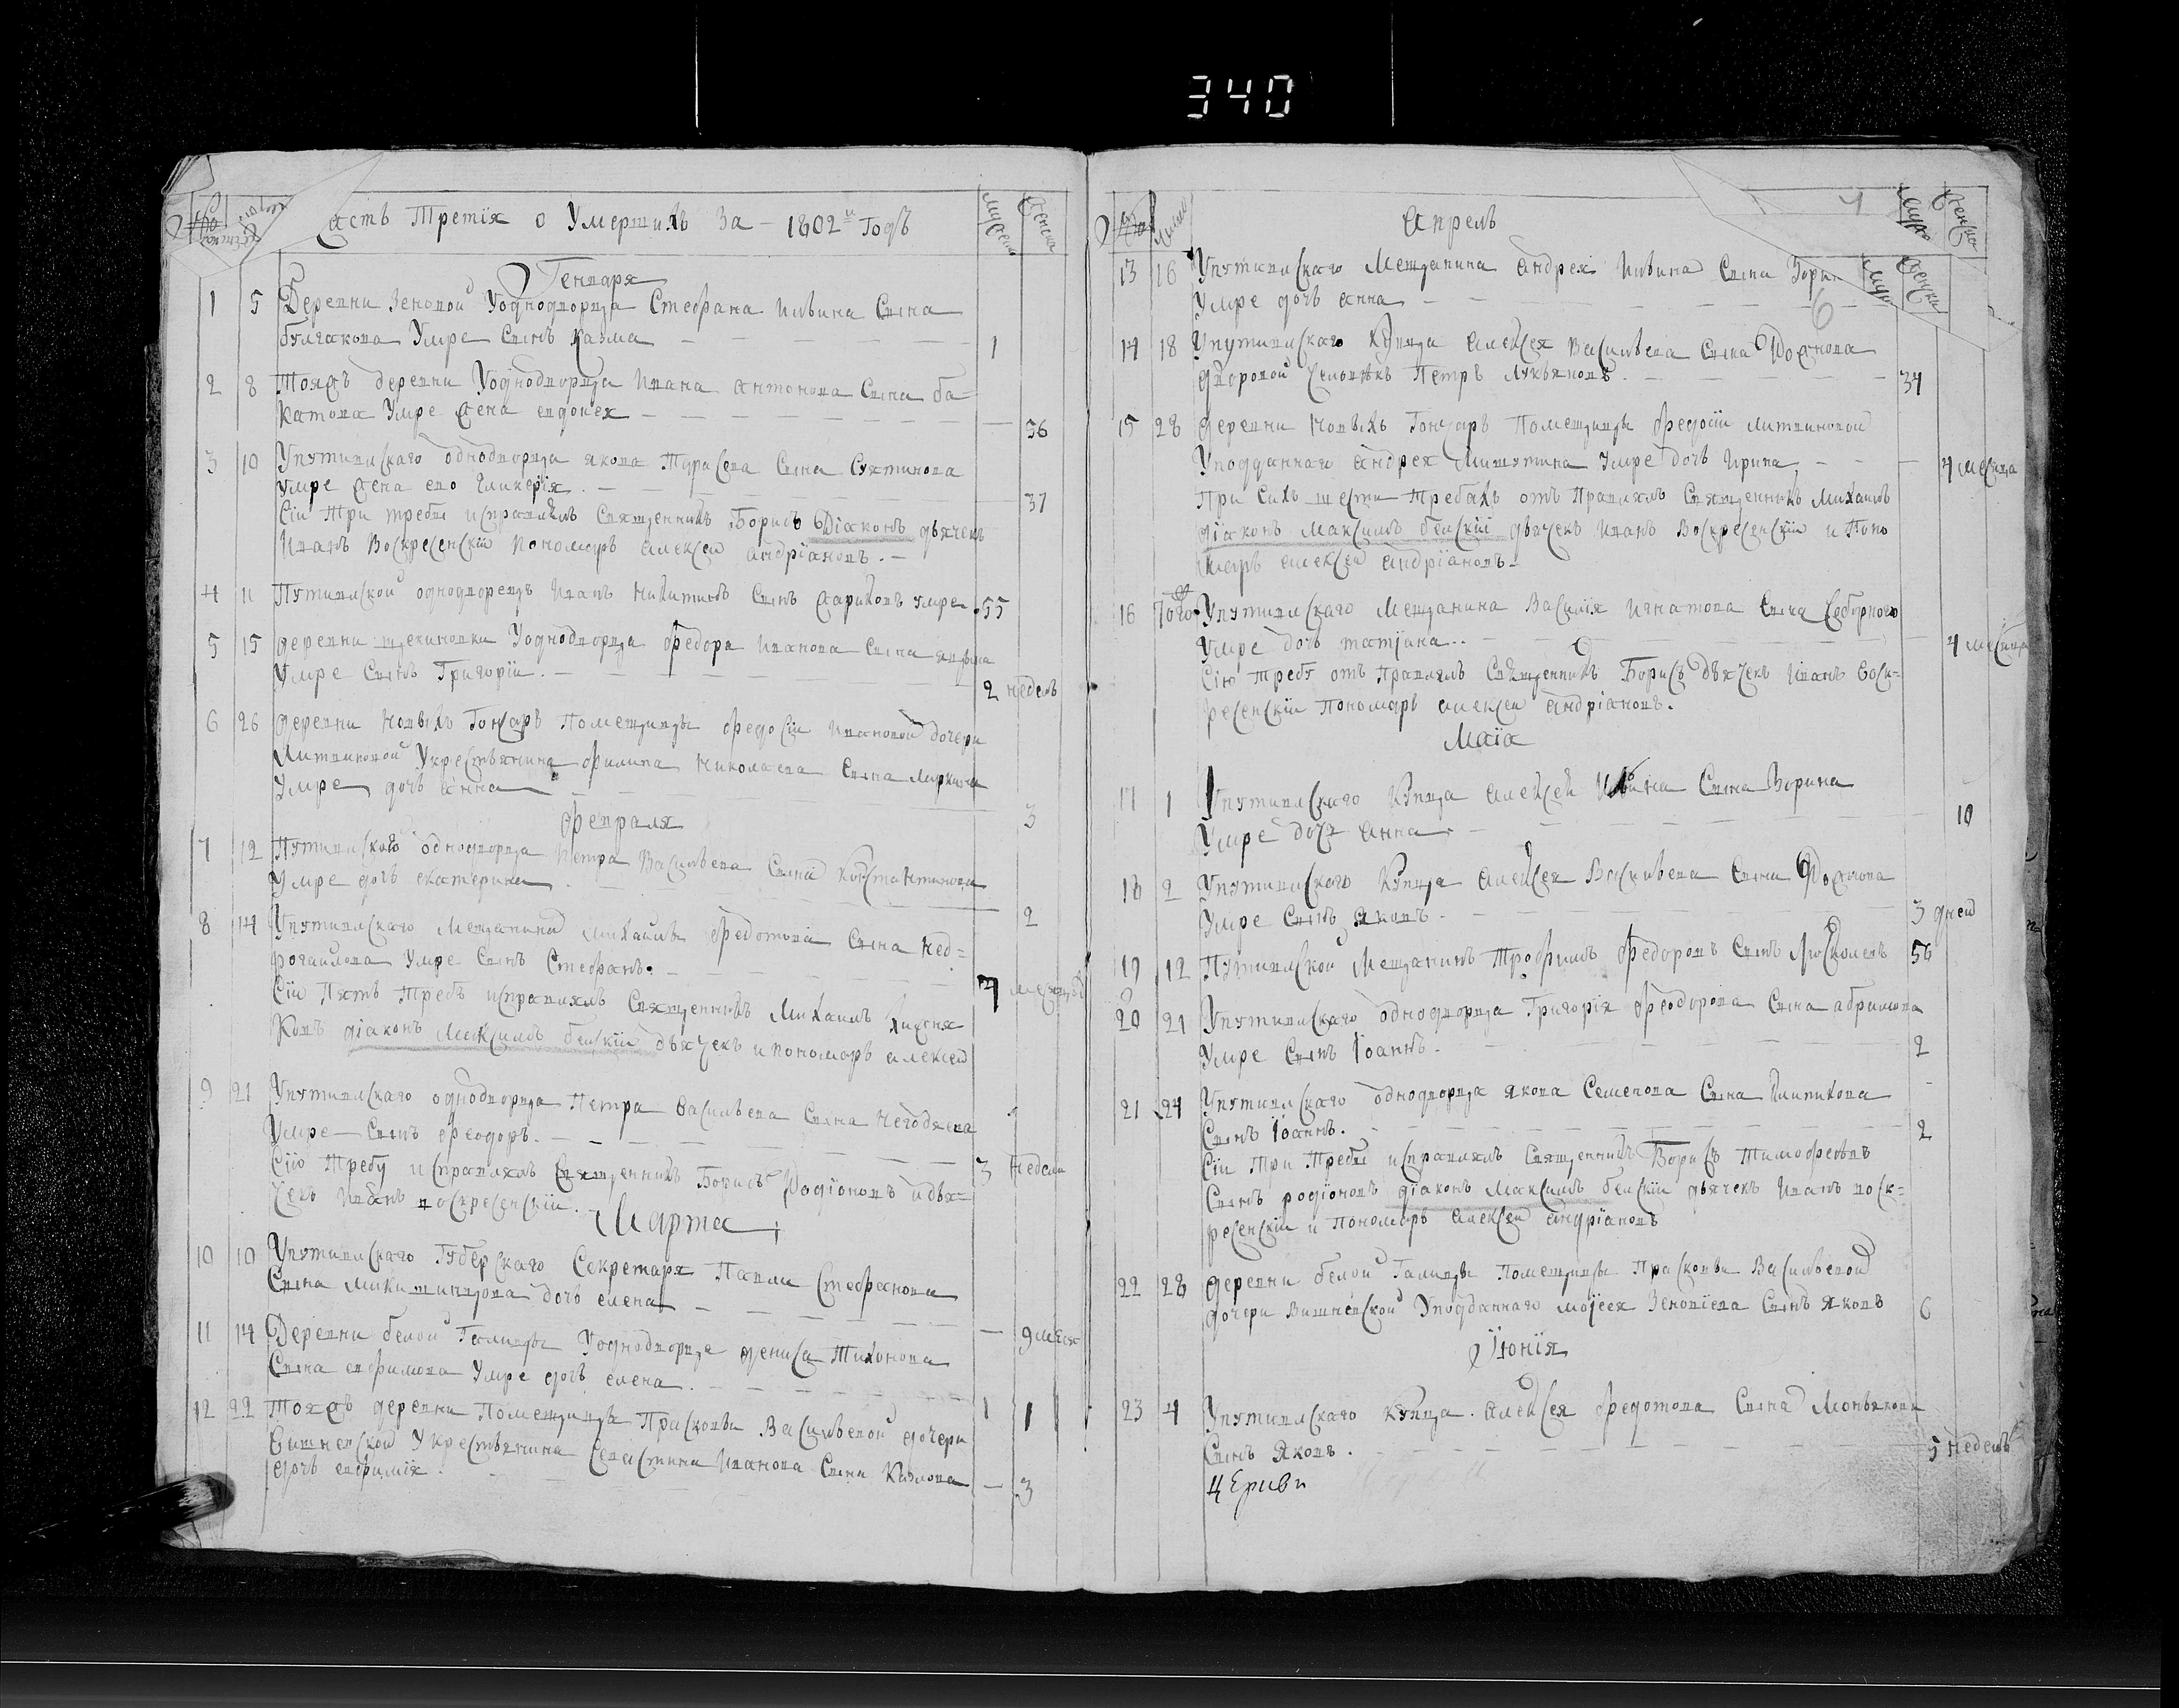 340
Часть Третія о Умершихъ За 1802й Годъ
мужеска
женска
Генваря
1 5 Деревни Зеновой Уоднодворца Стефана Ильина Сына
булгакова Умре Сынъ Казма 1
2 8 Тояжъ деревни Уоднодворца Ивана антонова Сына ба=
катова Умре жена евдокея 56
3 10 Упутивлскаго однодворца якова Сына
умре жена ево Гликерія 37
Сіи Три требы исправлялъ Священникъ Борисъ Діаконъ дьячекъ
Иванъ Воскресенскій пономарь алексей андріановъ.
4 11 Путивлской однодворецъ Иванъ Никитинъ Сынъ умре 55
5 15 деревни Уоднодворца федора иванова Сына
Умре Сынъ Григорій. 2 недель
6 26 деревни Новыхъ Гончаръ Помещицы федосіи Ивановой дочери
Литвиновой Укрестьянина филипа Николаева Сына
Умре дочь анна 3
февраля
7 12 Путивлскаго однодворца Петра Васильева Сына Константинова
Умре дочь екатерина 2
8 14 Упутивлскаго мещанина михаила федотова Сына
Умре Сынъ Стефанъ. 7
Сіи Пять Требъ исправлялъ Священникъ Михаилъ
діаконъ Максимъ белскій дьячекъ и пономарь алексей
9 21 Упутивлскаго однодворца Петра васильева Сына негодяева
Умре Сынъ феодоръ. 3 недели
Сію Требу исправлялъ Священникъ Борисъ Родіоновъ идья=
чекъ Иванъ воскресенскій.
Марта
10 10 Упутивлскаго Губерскаго Секретаря Павла Стефанова
Сына дочь елена 9 месяц
11 14 Деревни белой Галицы Уоднодворца дениса Тихонова
Сына ефимова Умре дочь елена. 1
12 22 Тояжъ деревни Помещицы Прасковьи Васильевой дочери
Вишневской Укрестьянина Иванова Сына Козлова
дочь евфимія. 3
апрель
мужес
женска
13 16 Упутивлскаго Мещанина андрея Ильина Сына Зори
Умре дочь анна 6
14 18 Упутивлскаго Купца алексея васильева Сына
дворовой Человекъ Петръ лукьяновъ. 34
15 28 деревни Новыхъ Гончаръ Помещицы федосіи литвиновой
Уподданнаго андрея Мишутина Умре дочь Ирина 4 месяца
При Сихъ шести Требахъ отъ Правлялъ Священникъ Михаилъ
діаконъ Максимъ белскій дьячекъ Иванъ Воскресенскій и Поно
марь алексей андріановъ
16 Того ж Упутивлскаго мещанина Василія игнатова Сына Соборного
Умре дочь татіана.. 4 месяца
Сію требу отъ Правлялъ Священникъ Борисъ дьячекъ Иванъ Воск=
ресенскій Пономарь алексей андріановъ.
Маія
17 1 Упутивлскаго купца алексей Ильина Сына Зорина
Умре дочь анна 10
18 2 Упутивлскаго Купца алексея Васильева Сына
Умре Сынъ яковъ. 3 дней
19 12 Путивлской Мещанинъ Трофимъ федоровъ Сынъ 56
20 21 Упутивлскаго однодворца Григорія феодорова Сына абрамова
Умре Сынъ Іоаннъ. 2
21 24 Упутивлскаго однодворца якова Семенова Сына
Сынъ Іоаннъ. 2
Сіи Три Требы исправлялъ Священникъ Борисъ Тимофеевъ
Сынъ родіоновъ діаконъ максимъ белскій дьячекъ Иванъ воск=
ресенскій и Пономарь алексей андріановъ
22 28 деревни белой Галицы Помещицы Прасковьи Васильевой
дочери Вишневской Уподданнаго моісея Зеновіева Сынъ яковъ 6
Іюнія
23 4 Упутивлскаго купца алексея федотова Сына
Сынъ Яковъ. 5 недель